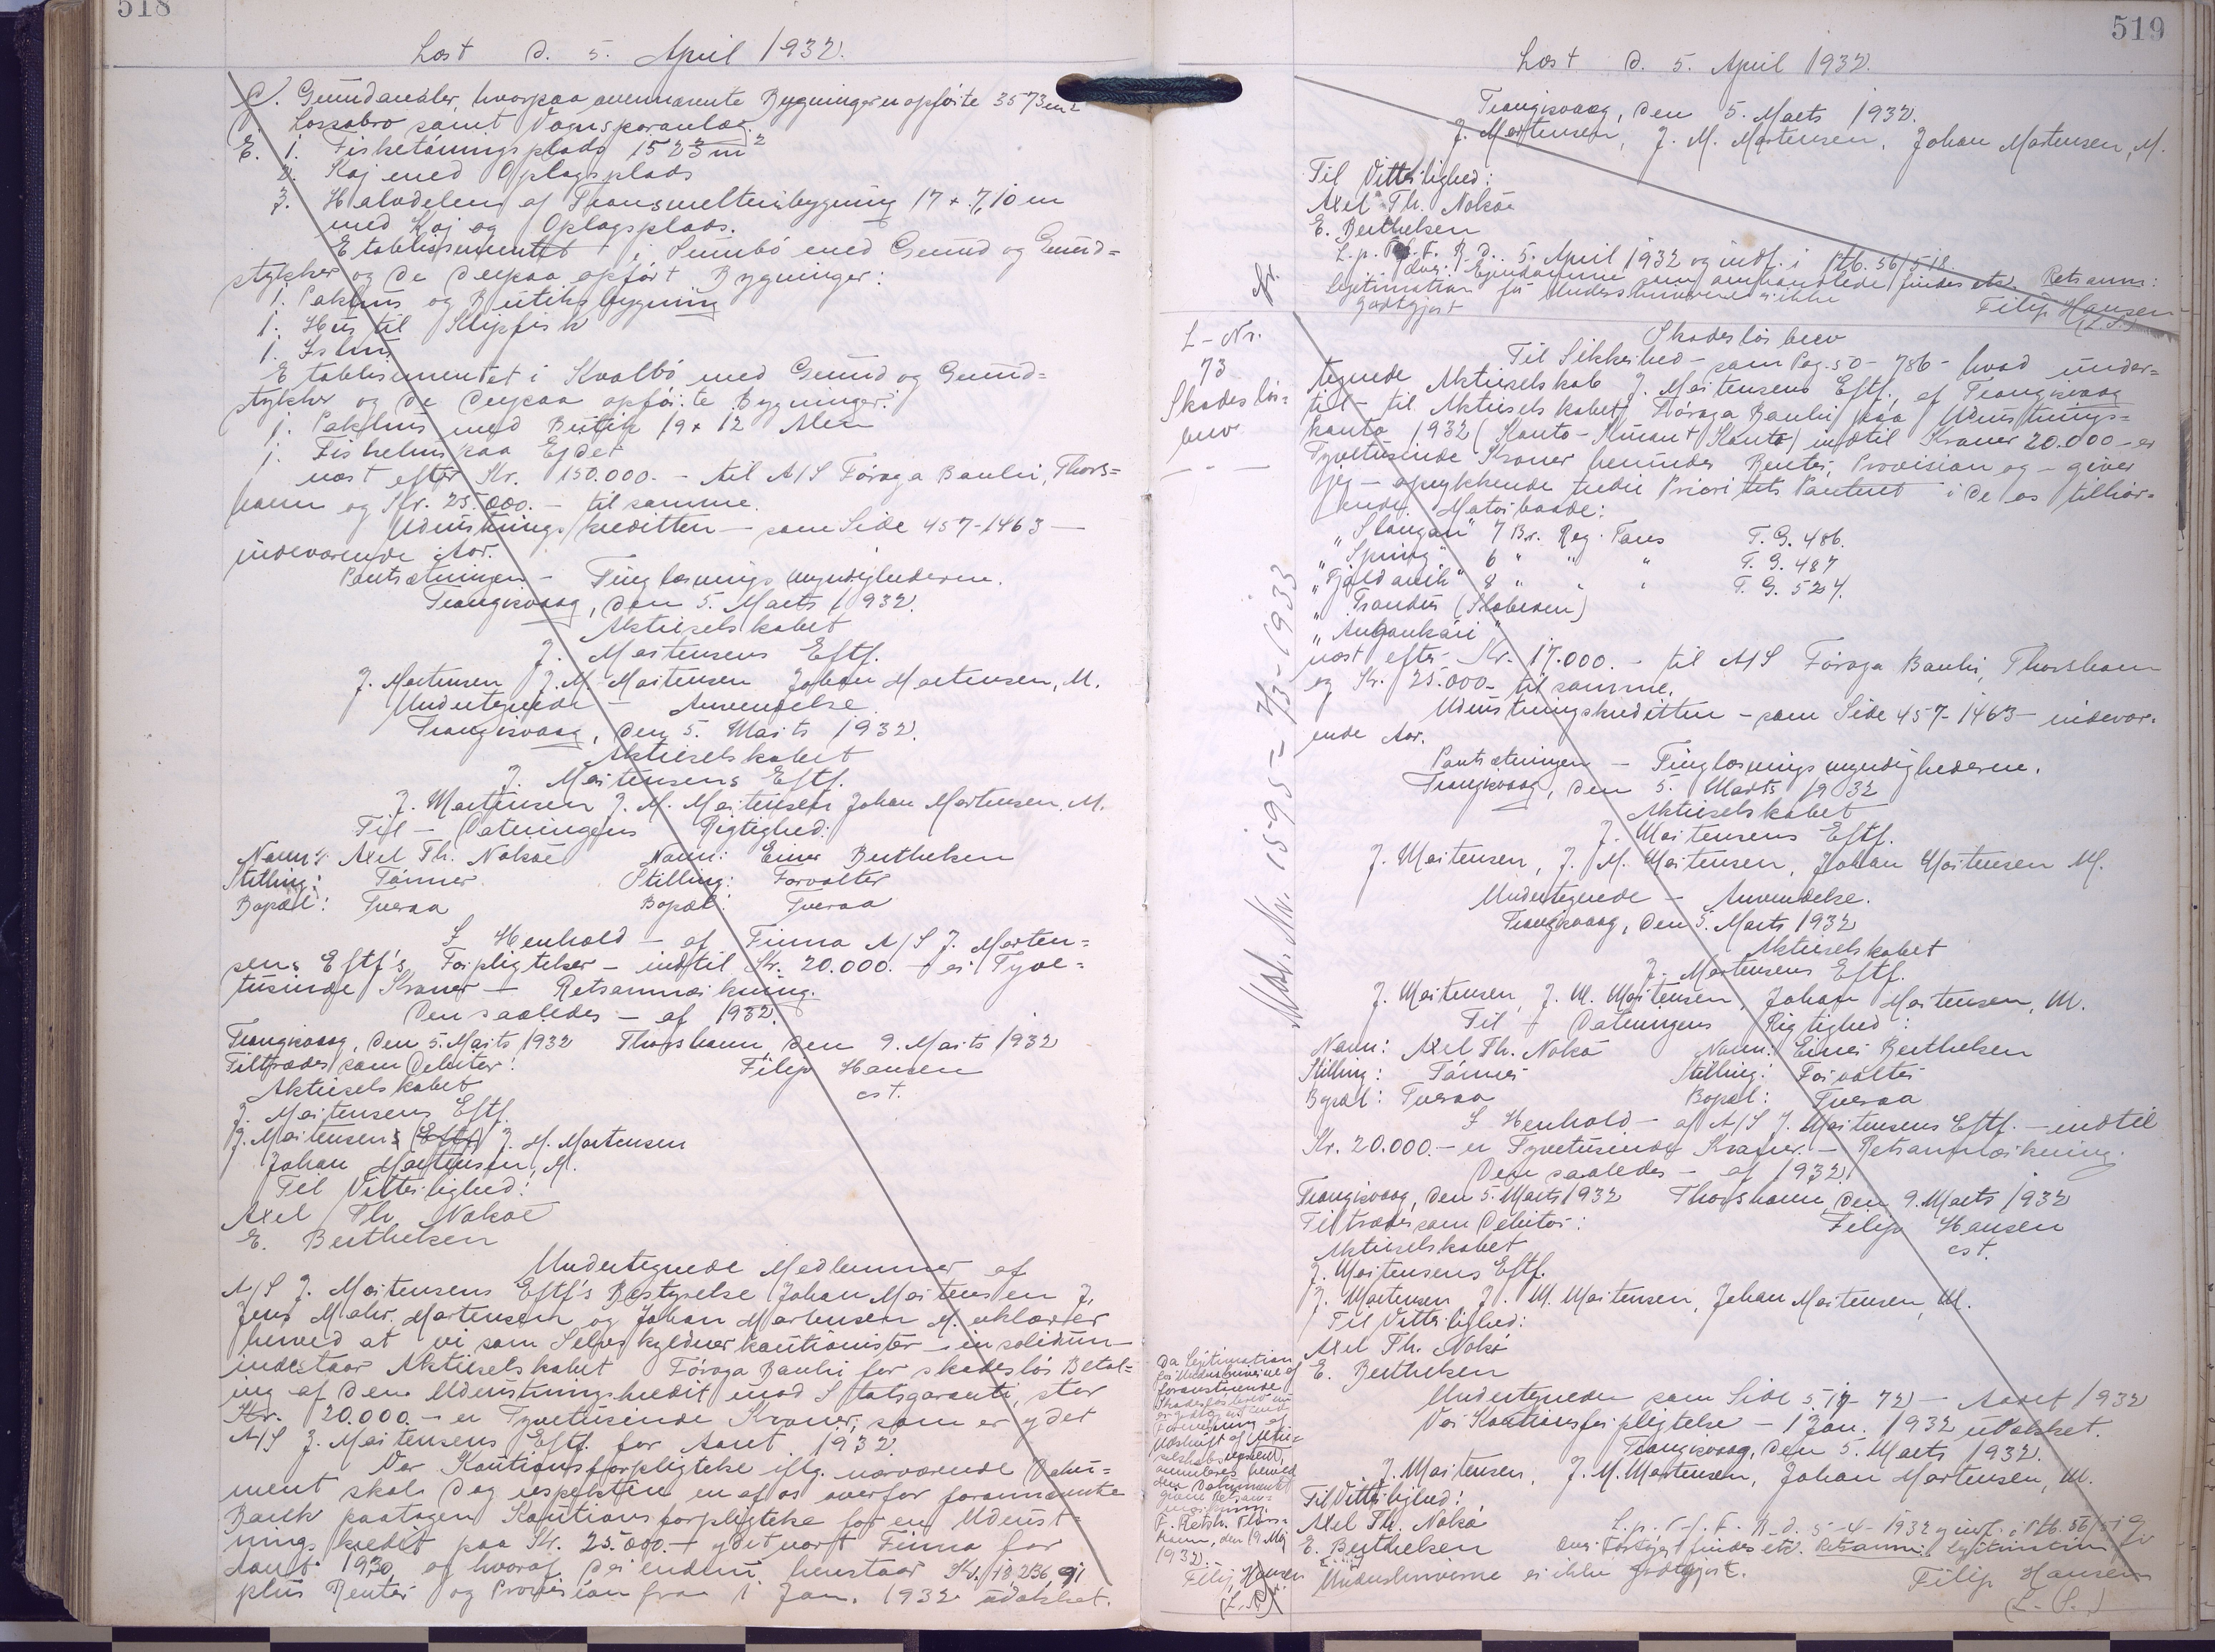 518
Læst d. 5. April 1932.
D. Grundarealer, hvorpaa ovennævnte Bygninger er opførte 3573 m2
Lossebro samt Vognsporanlæg.
E. 1. Fisketørringsplads 1523 m2
2. Kaj med Oplagsplads
3. Halvdelen af Transmelteribygning 17 x 7,10 m
med Kaj og Oplagsplads.
Etablissementet i Sumbø med Grund og Grund=
stykker og de derpaa opført Bygninger:
1. Pakhus og Butiksbygning
1. Hus til Klipfisk
1. Ishus
Etablissementet i Kvalbø med Grund og Grund=
stykker og de derpaa opførte Bygninger:
1. Pakhus med Butik 19 x 12 Alen
1. Fiskehus paa Ejdet
næst efter Kr. 150.000.- til A/S Føroya Banki, Thors=
havn og Kr. 25.000.- til samme.
Udrustningskreditten - som Side 457-1463 -
indeværende Aar.
Pantsætningen - Tinglæsningsmyndighederne.
Trangisvaag, den 5. Marts 1932.
Aktieselskabet
J. Mortensens Eftf.
J. Mortensen J. M. Mortensen Johan Mortensen, M.
Undertegnede - Anvendelse
Trangisvaag, den 5. Marts 1932.
Aktieselskabet
J. Mortensens Eftf.
J. Mortensen J. M. Mortensen Johan Mortensen, M.
Til - Dateringens Rigtighed:
Navn: Axel Th. Nolsøe Navn: Einar Berthelsen
Stilling: Tømrer Stilling: Forvalter
Bopæl: Tveraa Bopæl: Tveraa
I Henhold - af Firma A/S J. Morten=
sens Eftf's Forpligtelser - indtil Kr. 20.000.- er Tyve=
tusinde Kroner - Retsanmærkning.
Den saaledes - af 1932.
Trangisvaag, den 5. Marts 1932 Thorshavn, den 9. Marts 1932
Tiltrædes som Debitor: Filip Hansen
Aktieselskabet cst.
J. Mortensens Eftf.
J. Mortensens (Eftf) J. M. Mortensen
Johan Mortensen, M.
Til Vitterlighed:
Axel Th Nolsøe
E. Berthelsen
Undertegnede Medlemmer af
A/S J. Mortensens Eftf's Bestyrelse Johan Mortensen J,
Jens Mohr Mortensen og Johan Mortensen M. erklærer
herved at vi som Selvskyldnerkautionister - in solidum -
indestaar Aktieselskabet Føroya Banki for skadesløs Betal=
ing af den Udrustningskredit mod Statsgaranti, stor
Kr. 20.000.- er Tyvetusinde Kroner, som er ydet
A/S J. Mortensens Eftf. for Aaret 1932.
Vor Kautionsforpligtelse iflg. nærværende Doku=
ment skal dog respektere en af os overfor forannævnte
Bank paatagen Kautionsforpligtelse for en Udrust=
ningskredit paa Kr. 25.000.- ydet vort Firma for
Aaret 1930, og hvoraf der endnu henstaar Kr. 18236,91
plus Renter og Provision fra 1 Jan. 1932 udækket.
519
Læst d. 5. April 1932.
Trangisvaag, den 5. Marts 1932.
J. Mortensen, J. M. Mortensen, Johan Mortensen, M.
Til Vitterlighed:
Axel Th. Nolsøe
E. Berthelsen
L. p. T. f. F. R. d. 5. April 1932 og indf. i Ptb. 56/518.
Ovr. Ejendommene som omhandlede findes etc. Retsanm:
Legitimation for Underskriverne er ikke
godtgjort Filip Hansen
(L.S.)
L-Nr.
73
Skadesløs=
brev
Skadesløsbrev
Til Sikkerhed - som Pag. 50-786 - hvad under=
tegnede Aktieselskab J. Mortensens Eftf. af Trangisvaag
til - til Aktieselskabet Føroya Banki paa Udrustnings=
konto 1932 (Konto-Kurant Konto) indtil Kroner 20.000 - er
Tyvetusinde Kroner herunder Renter, Provision og - giver
jeg - oprykkende tredie Prioritets Panteret i de os tilhør=
ende Motorbaade:
"Slangan" 7 Br. Reg. Tons T.G. 486.
"Spring" 6 " " " T.G. 487
"Fjaldavík" 8 " " " T.G. 524.
" Trondur (Slabesen)
" Aukankári "
næst efter Kr. 17.000.- til A/S Føroya Banki, Thorshavn
og Kr. 25.000- til samme.
Udrustningskreditten - som Side 457-1463 - indevær=
ende Aar.
Pantsætningen - Tinglæsningsmyndighederne.
Trangisvaag, den 5. Marts 1932
Aktieselskabet
J. Mortensens Eftf.
J. Mortensen, J. M. Mortensen, Johan Mortensen M.
Undertegnede - Anvendelse.
Trangisvaag, den 5. Marts 1932
Aktieselskabet
J. Mortensens Eftf.
J. Mortensen, J. M. Mortensen, Johan Mortensen, M.
Til - Dateringens Rigtighed:
Navn: Axel Th. Nolsø Navn: Einar Berthelsen
Stilling: Tømrer Stilling: Forvalter
Bopæl: Tveraa Bopæl: Tveraa
I Henhold - af A/S J. Mortensens Eftf. - indtil
Kr. 20.000.- er Tyvetusinde Kroner. - Retsanmærkning.
Den saaledes - af 1932.
Trangisvaag, den 5. Marts 1932 Thorshavn, den 9. Marts 1932
Tiltrædes som Debitor: Filip Hansen
Aktieselskabet cst.
J. Mortensens Eftf.
J. Mortensen J. M. Mortensen, Johan Mortensen, M.
Til Vitterlighed:
Axel Th. Nolsø
E. Berthelsen
Undertegneden som Side 517-72) - Aaret 1932
Vor Kautionsforpligtelse - 1 Jan. 1932 udækket.
Trangisvaag, den 5. Marts 1932.
J. Mortensen, J. M. Mortensen, Johan Mortensen, M.
Til Vitterlighed:
Axel Th. Nolsø L. p. T. f. F. R. d. 5-4-1932 og indf. i Ptb. 56/519
E. Berthelsen Ovr. Fartøjet findes etc. Retsanm: Legitimation for
Underskriverne er ikke godtgjort. Filip Hansen
(L.S.)
Da Legitimation
for Underskriverne af
foranstaaende
Skadesløsbrev nu
F. Retsk. Thors=
havn, den 19. Maj
1932.
Filip Hansen
(L.S.)
Nr. 1595 - 7/3-1933